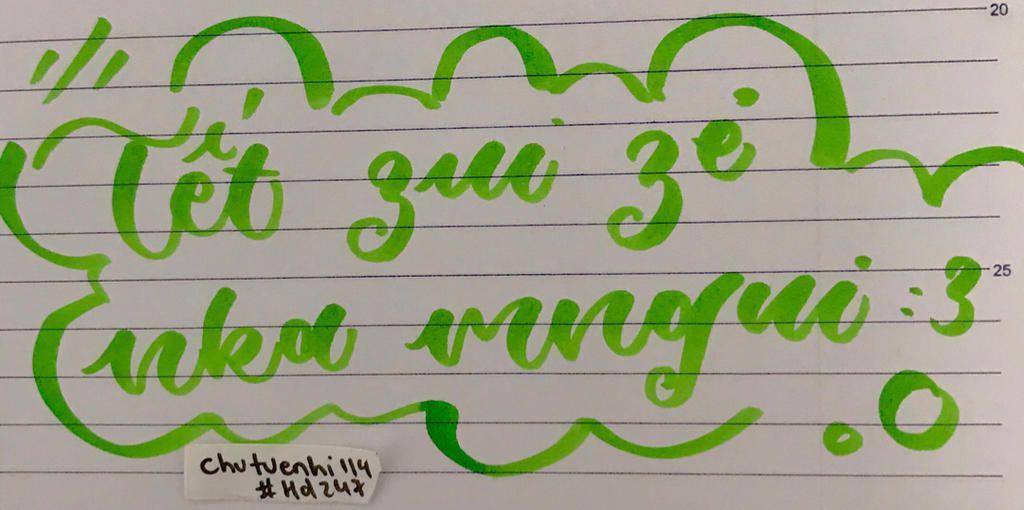 20
Tết zui zẻ
25
nka mngui :3
chutuenhi114
#Hd247